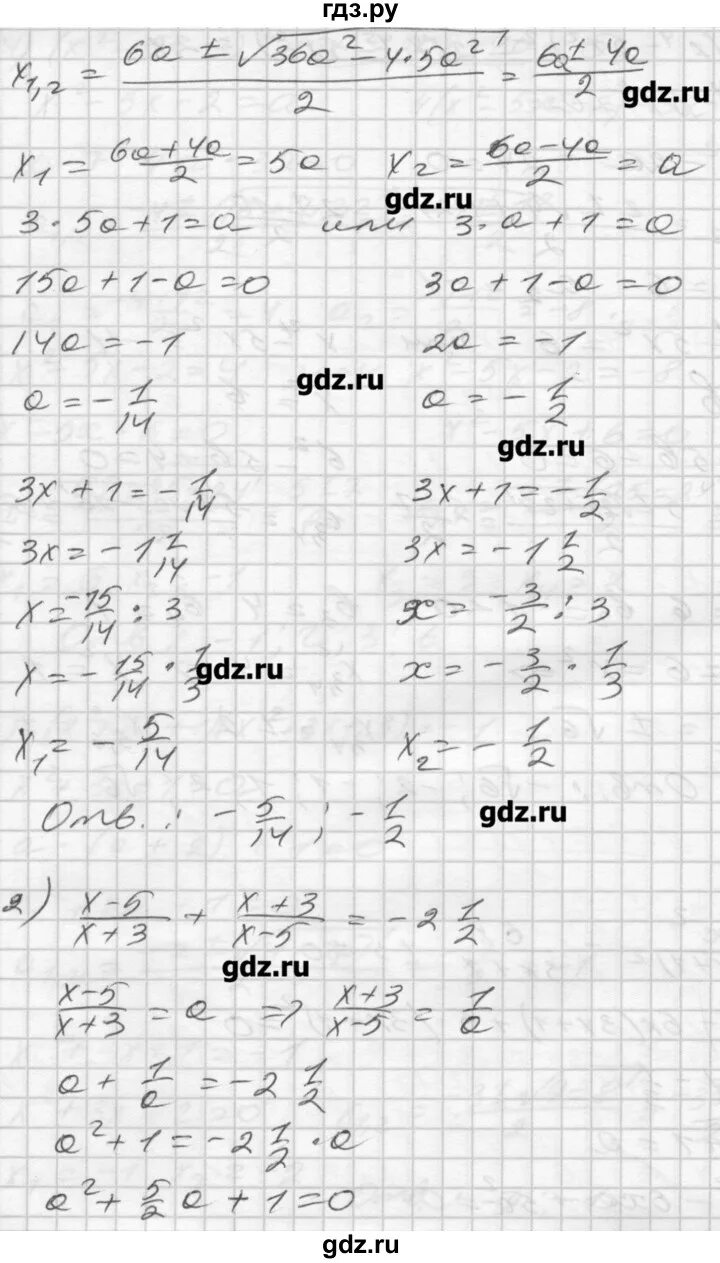 гдз.ру
x₁,₂ = (6a ± √(36a² - 4·5a²))/2 = (6a ± 4a)/2
gdz.ru
x₁ = (6a+4a)/2 = 5a x₂ = (6a-4a)/2 = a
gdz.ru
3·5a+1=a или 3·a+1=a
15a+1-a=0 3a+1-a=0
14a=-1 2a=-1
gdz.ru
a=-1/14 a=-1/2
gdz.ru
3x+1=-1/14 3x+1=-1/2
3x=-1 1/14 3x=-1 1/2
x=-15/14:3 x=-3/2:3
x=-15/14·1/3 x=-3/2·1/3
gdz.ru
x₁=-5/14 x₂=-1/2
Отв.: -5/14; -1/2
gdz.ru
2) (x-5)/(x+3) + (x+3)/(x-5) = -2 1/2
gdz.ru
(x-5)/(x+3) = a => (x+3)/(x-5) = 1/a
a + 1/a = -2 1/2
a²+1=-2 1/2·a
a²+5/2a+1=0
gdz.ru